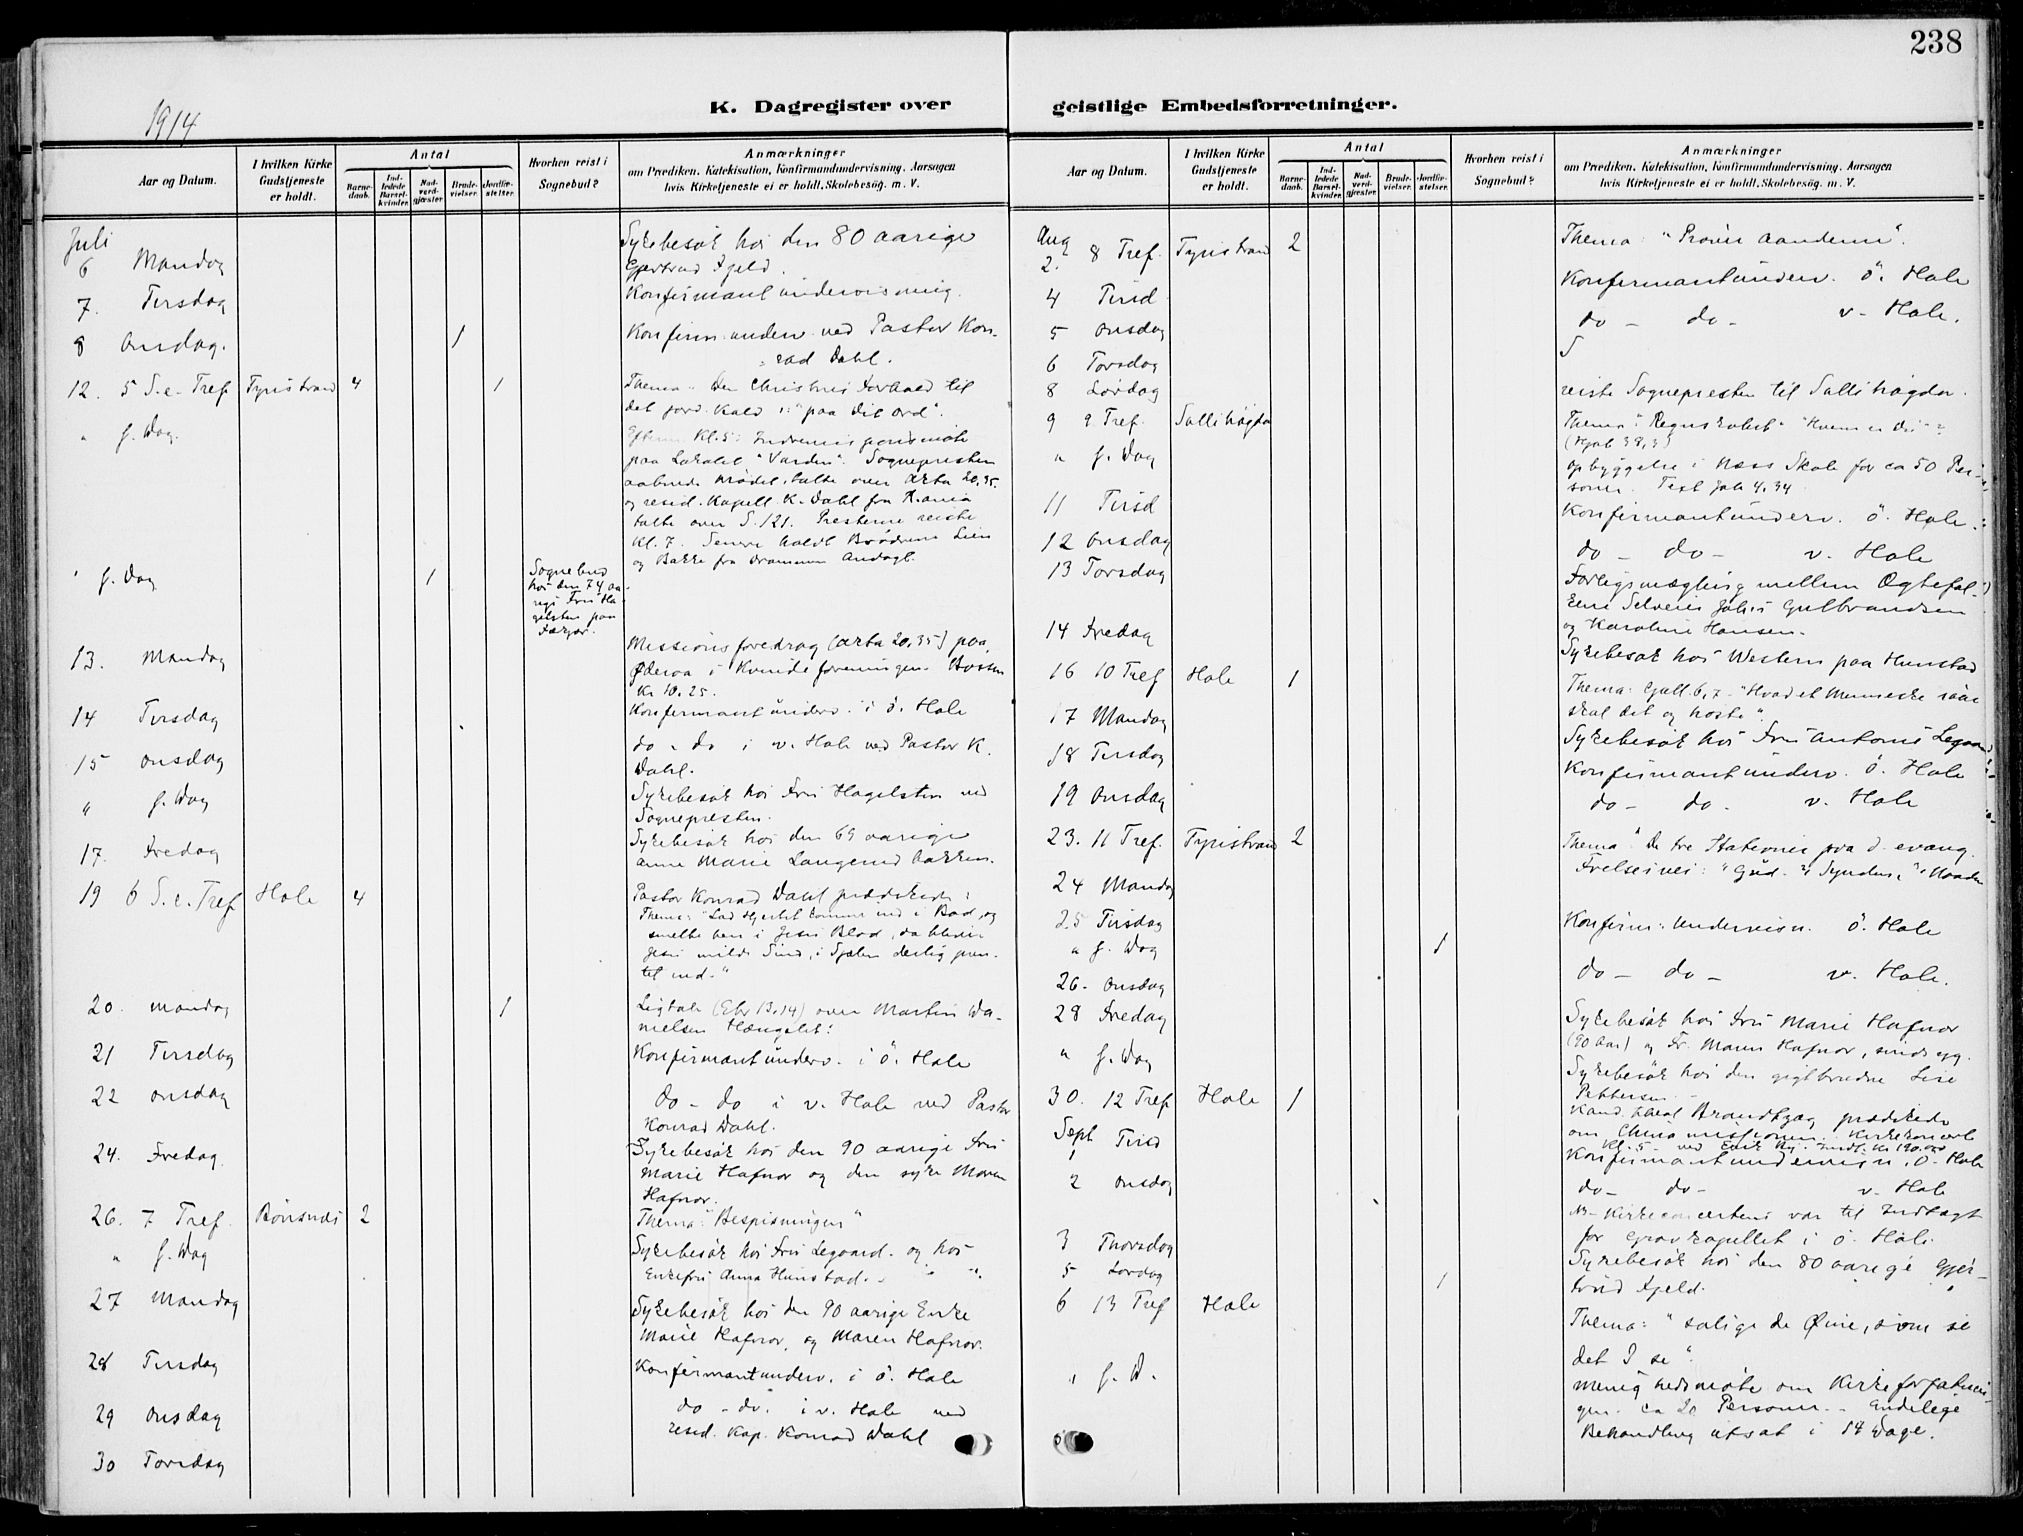 238
1914
K. Dagregister over
geistlige Embedsforretninger.
Aar og Datum.
I hvilken Kirke
Gudstjeneste
er holdt.
Antal
Barne-
daab.
Ind-
ledede
Barsel-
kvinder.
Nad-
verd-
gjæster.
Brude-
vielser.
Jordfæ-
stelser.
Hvorhen reist i
Sognebud?
Anmærkninger
om Prædiken, Katekisation, Konfirmandundervisning, Aarsagen
hvis Kirketjeneste ei er holdt, Skolebesøg. m. V.
Juli
6 Mandag
Sykebesøk hos den 80 aarige
Gjertrud Fjeld.
7. Tirsdag
Konfirmantundervisning.
8 Onsdag. 1
Konfirm. underv. ved Pastor Kon-
rad Dahl.
12. 5 S. e. Tref Tyristrand 4 1
Thema: Den Christnes Forhold til
det jord. Kald : "paa dit ord".
" s. Dag.
Efterm. Kl. 5:
paa Lokalet "Varden". Sognepresten
aabnede Mødet, talte over Akta 20,35.
og resid. Kapell. K. Dahl fra
talte over S. 121. Presterne reiste
Kl. 7. Senere holdt Brødrene Lien
og Bakke fra Drammen Andagt.
" s. Dag 1
Sognebud
hos den 74 aa-
rige Fru Ha-
gelsten paa
Missionsforedrag (Akta 20,35) paa
13. Mandag
i Kvindeforeningen. Bøssen
Kr 10.25.
14 Tirsdag
Konfirmantunderv. i ö. Hole
15 Onsdag
do - do i v. Hole ved Pastor K.
Dahl.
" s. Dag
Sykebesøk hos Fru Hagelsten ved
Sognepresten.
17. Fredag
Sykebesøk hos den 69 aarige
Anne Marie Langerudbakken.
19 6 S. e. Tref Hole 4
Pastor Konrad Dahl prædikede:
Thema: "Lad Hjertet komme ned i Bad, og
smelte hen i Jesu Blod, da bliver
Jesu milde Sind, i Sjælen deilig pren-
tet ind."
20. Mandag 1
Ligtale (Ebr 13,14) over Martin Da-
nielsen
21 Tirsdag
Konfirmantunderv. i ö. Hole
22 Onsdag
do - do i v. Hole ved Pastor
Konrad Dahl.
24. Fredag.
Sykebesøk hos den 90 aarige Fru
Marie Hafnor og den syke Maren
Hafnor.
26. 7 Tref. Bönsnes 2
Thema: "Bespisningen"
" s. Dag
Sykebesøk hos Fru Legaard. og hos
Enkefru Anna Hunstad.
27 Mandag
Sykebesøk hos den 90 aarige Enke
Marie Hafnor, og Maren Hafnor.
28 Tirsdag
Konfirmantunderv. i ö. Hole
29 Onsdag
do - do. i v. Hole ved
resid. Kap. Konrad Dahl
30 Torsdag
Aar og Datum.
I hvilken Kirke
Gudstjeneste
er holdt.
Antal
Barne-
daab.
Ind-
ledede
Barsel-
kvinder.
Nad-
verd-
gjæster.
Brude-
vielser.
Jordfæ-
stelser.
Hvorhen reist i
Sognebud?
Anmærkninger
om Prædiken, Katekisation, Konfirmandundervisning, Aarsagen
hvis Kirketjeneste ei er holdt, Skolebesøg. m. V.
Aug
2. 8 Tref. Tyristrand 2
Thema: "Pröver Aanderne".
4 Tirsd
Konfirmantunderv. ö. Hole
5 Onsdag
do - do - v. Hole.
6 Torsdag
8 Lördag
reiste Sognepresten til Sollihøgda.
9 9 Tref. Sollihøgda
Thema: "Regnskabet"
" s. Dag
opbyggelse i Næss Skole for ca 50 Per-
soner. Text Joh 4,34
11 Tirsd
Konfirmantunderv. ö. Hole.
12 Onsdag
do - do - v. Hole
13 Torsdag
Forligsmægling mellem Ægtefol-
Gulbrandsen
og Karoline Hansen.
14 Fredag
Sykebesøk hos Western paa Hunstad
16 10 Tref Hole 1
Thema: Gall. 6,7 - "Hvad et Menneske saar
skal det og höste".
17 Mandag
Sykebesøk hos Fru Antoni Legaard
18 Tirsdag
Konfirmantunderv. ö. Hole
19 Onsdag
do - do - v. Hole
23. 11 Tref. Tyristrand 2
Thema: De tre Stationer paa d. evang.
Frelsesvei: "Gud - "Synden," "Naaden
24 Mandag
25 Tirsdag
Konfirm: Undervisn. ö. Hole
" s. Dag 1
26. Onsdag
do - do - v. Hole.
28 Fredag
Sykebesøk hos Fru Marie Hafnor
(90 Aar) og Fr. Maren Hafnor, sindssyg.
" s. Dag
Sykebesøk hos den gigtbrudne Lise
Pettersen
30. 12 Tref Hole 1
Kand. theol. Brandtzæg prædikede
om Chinamissionen. Kirkekoncert
Kl. 5 Indt. Kr 190.00
Sept
1 Tirsd
Konfirmantundervisn. ö. Hole
2 Onsdag
do - do - v. Hole
NB - Kirkeconcerten var til Indtægt
for Gravkapellet i ö. Hole.
3 Thorsdag
Sykebesøk hos den 80 aarige Gjer-
trud Fjeld.
5 Lördag 1
6 13 Tref Hole
Thema: "Salige de Øine, som se
det I se".
" s. D.
Menighedsmöte om Kirkeforfatnin-
gen. ca 20 Personer. - Endelige
Behandling utsat i 14 Dage.